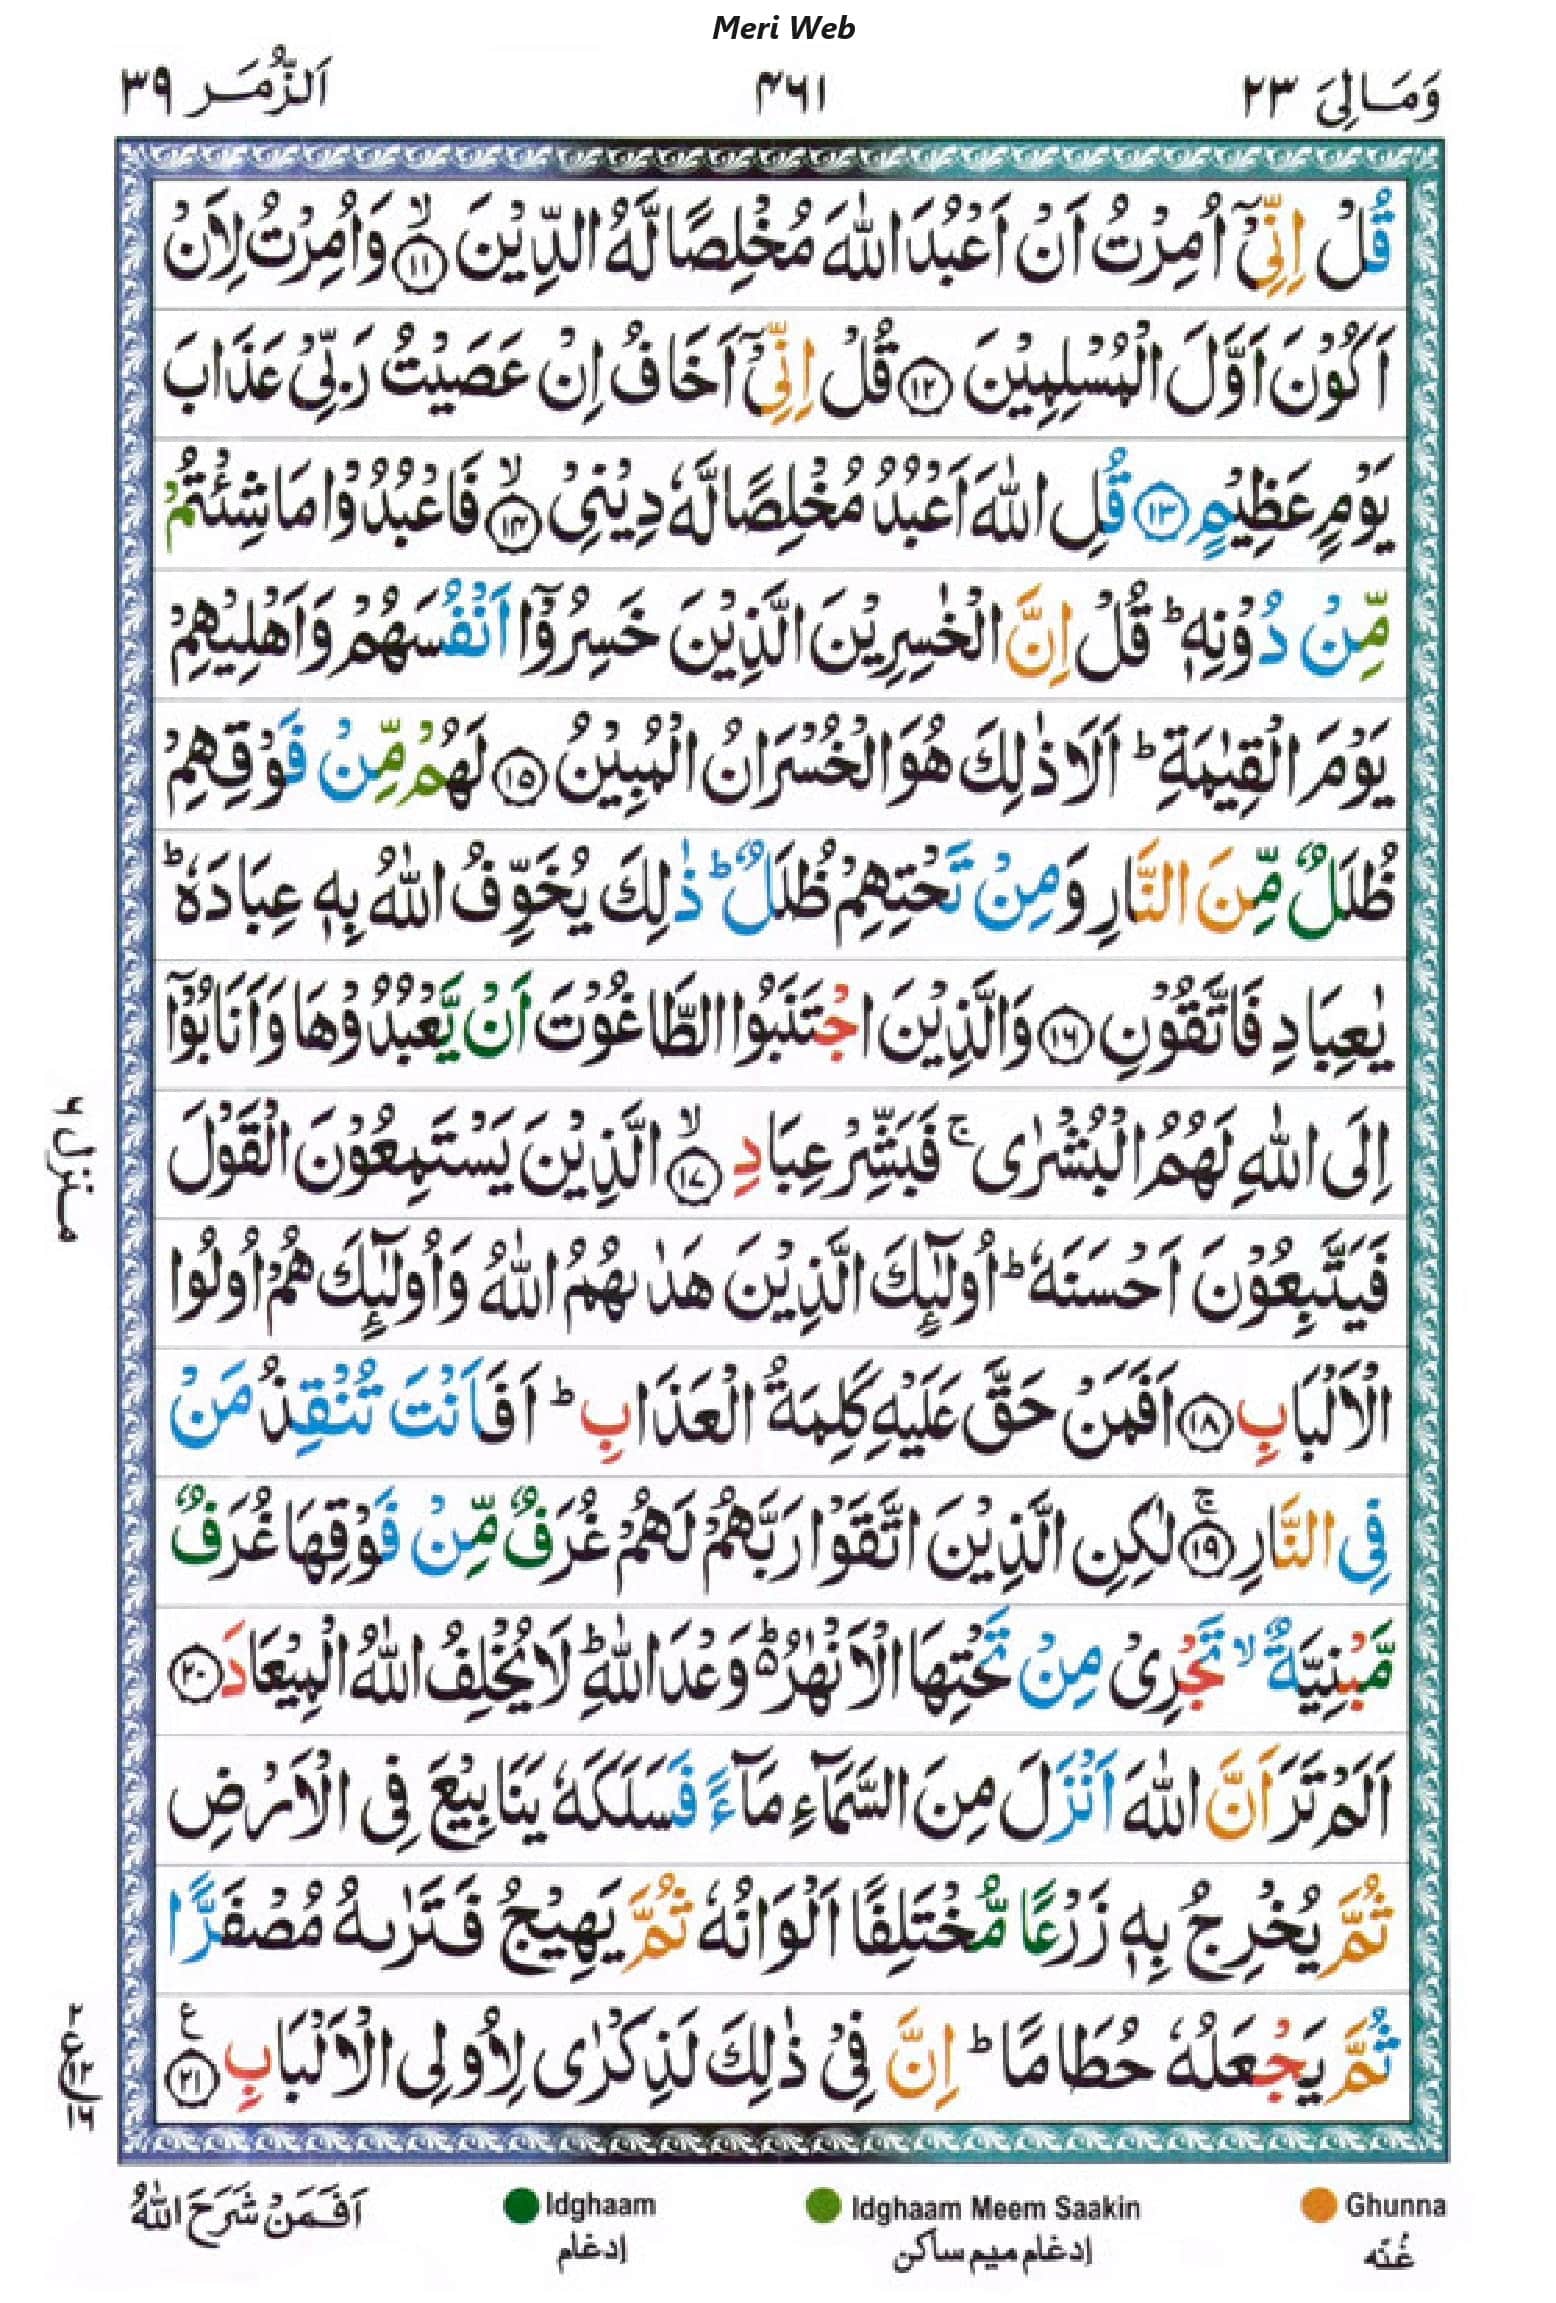 Meri Web
وَمَالِیَ ٢٣
۴٦١
اَلزُّمَر ٣٩
قُلْ اِنِّیْۤ اُمِرْتُ اَنْ اَعْبُدَ اللّٰهَ مُخْلِصًا لَّهُ الدِّیْنَ ۙ﴿۱۱﴾ وَاُمِرْتُ لِاَنْ
اَكُوْنَ اَوَّلَ الْمُسْلِمِیْنَ ﴿۱۲﴾ قُلْ اِنِّیْۤ اَخَافُ اِنْ عَصَیْتُ رَبِّیْ عَذَابَ
یَوْمٍ عَظِیْمٍ ﴿۱۳﴾ قُلِ اللّٰهَ اَعْبُدُ مُخْلِصًا لَّهٗ دِیْنِیْ ۙ﴿۱۴﴾ فَاعْبُدُوْا مَا شِئْتُمْ
مِّنْ دُوْنِهٖ ؕ قُلْ اِنَّ الْخٰسِرِیْنَ الَّذِیْنَ خَسِرُوْۤا اَنْفُسَهُمْ وَاَهْلِیْهِمْ
یَوْمَ الْقِیٰمَةِ ؕ اَلَا ذٰلِكَ هُوَ الْخُسْرَانُ الْمُبِیْنُ ﴿۱۵﴾ لَهُمْ مِّنْ فَوْقِهِمْ
ظُلَلٌ مِّنَ النَّارِ وَمِنْ تَحْتِهِمْ ظُلَلٌ ؕ ذٰلِكَ یُخَوِّفُ اللّٰهُ بِهٖ عِبَادَهٗ ؕ
یٰعِبَادِ فَاتَّقُوْنِ ﴿۱۶﴾ وَالَّذِیْنَ اجْتَنَبُوا الطَّاغُوْتَ اَنْ یَّعْبُدُوْهَا وَاَنَابُوْۤا
اِلَی اللّٰهِ لَهُمُ الْبُشْرٰی ۚ فَبَشِّرْ عِبَادِ ۙ﴿۱۷﴾ الَّذِیْنَ یَسْتَمِعُوْنَ الْقَوْلَ
فَیَتَّبِعُوْنَ اَحْسَنَهٗ ؕ اُولٰٓئِكَ الَّذِیْنَ هَدٰىهُمُ اللّٰهُ وَاُولٰٓئِكَ هُمْ اُولُوا
الْاَلْبَابِ ﴿۱۸﴾ اَفَمَنْ حَقَّ عَلَیْهِ كَلِمَةُ الْعَذَابِ ؕ اَفَاَنْتَ تُنْقِذُ مَنْ
فِی النَّارِ ۚ﴿۱۹﴾ لٰكِنِ الَّذِیْنَ اتَّقَوْا رَبَّهُمْ لَهُمْ غُرَفٌ مِّنْ فَوْقِهَا غُرَفٌ
مَّبْنِیَّةٌ ۙ تَجْرِیْ مِنْ تَحْتِهَا الْاَنْهٰرُ ۬ؕ وَعْدَ اللّٰهِ ؕ لَا یُخْلِفُ اللّٰهُ الْمِیْعَادَ ﴿۲۰﴾
اَلَمْ تَرَ اَنَّ اللّٰهَ اَنْزَلَ مِنَ السَّمَآءِ مَآءً فَسَلَكَهٗ یَنَابِیْعَ فِی الْاَرْضِ
ثُمَّ یُخْرِجُ بِهٖ زَرْعًا مُّخْتَلِفًا اَلْوَانُهٗ ثُمَّ یَهِیْجُ فَتَرٰىهُ مُصْفَرًّا
ثُمَّ یَجْعَلُهٗ حُطَامًا ؕ اِنَّ فِیْ ذٰلِكَ لَذِكْرٰی لِاُولِی الْاَلْبَابِ ﴿۲۱﴾ ع
منزل ٦
٢
ع ١٢
١٦
Ghunna
غُنّه
Idghaam Meem Saakin
إدغام ميم ساكن
Idghaam
إدغام
اَفَمَنْ شَرَحَ اللّٰهُ